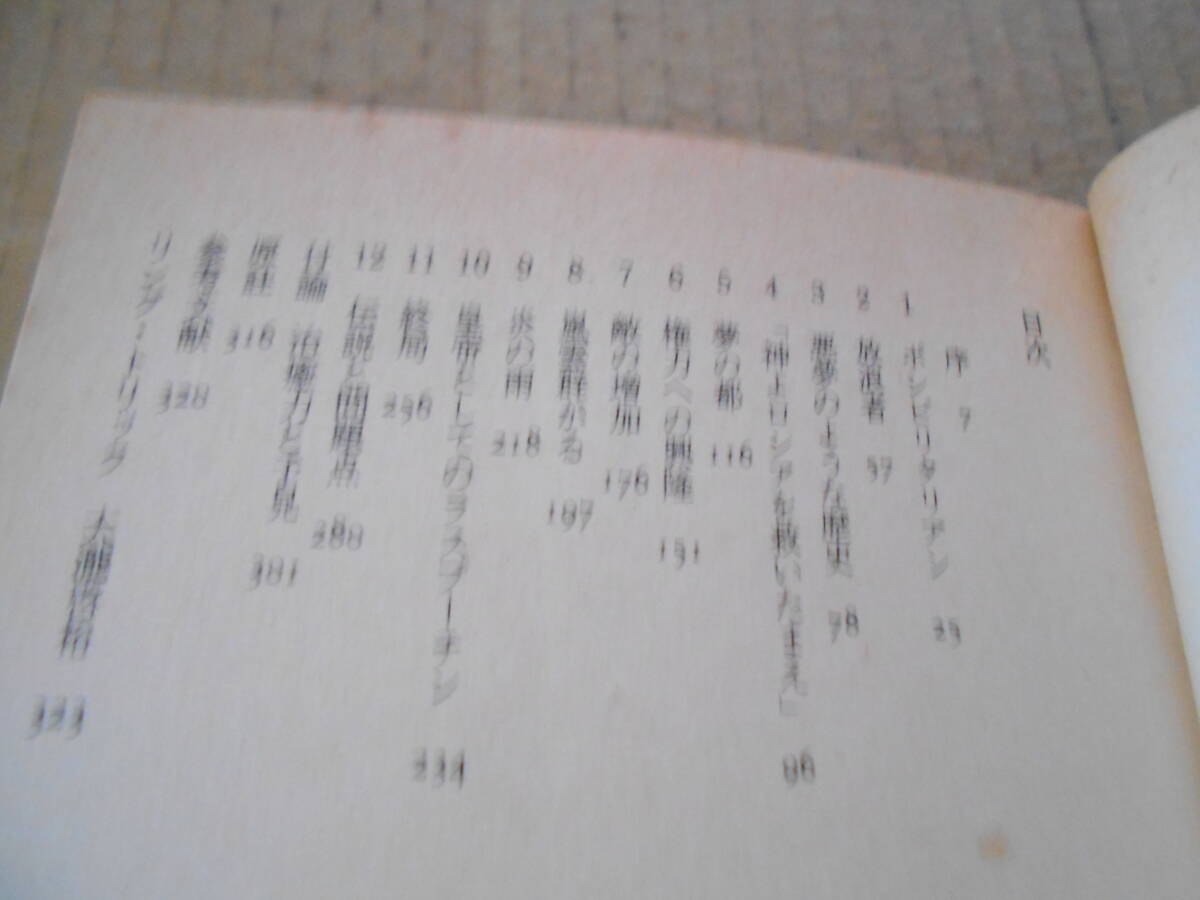 目次
序 7
1 ポシビリタリアン
2 放浪者
3 悪夢のような歴史 78
4 「神よロシアを救いたまえ」 96
5 夢の都 116
6 権力への興隆
7 敵の増加 176
8 嵐雲群がる 197
9 炎の雨 218
10 皇帝としてのラスプーチン 234
11 終局 256
12 伝説と問題点
付論 治癒力と予見 301
原註 316
参考文献
リング・トリック 大瀧啓裕 323